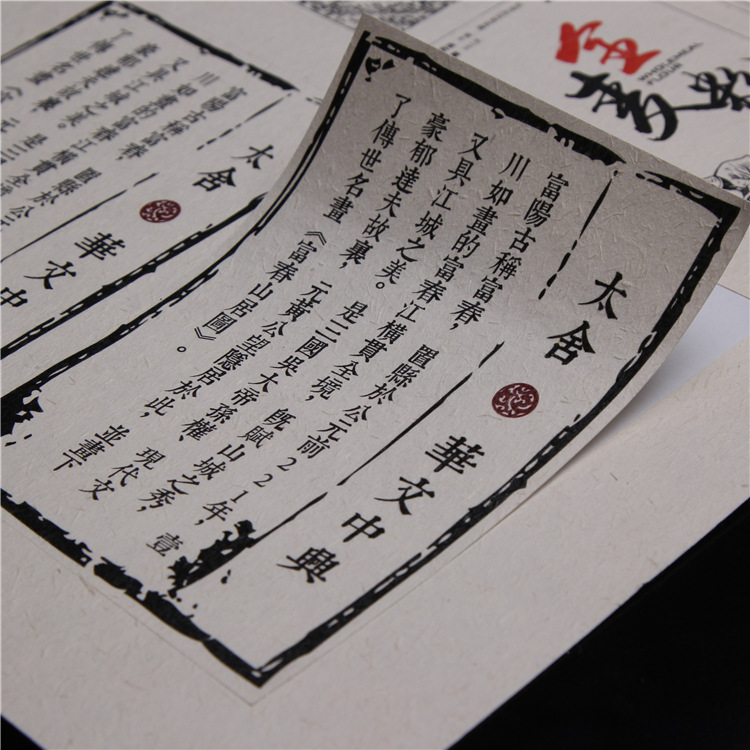 太舍 華文中興
富陽古稱富春，置縣於公元前221年，壹
川如畫的富春江橫貫全境，既賦山城之秀，
又具江城之美。是三國吳大帝孫權、現代文
豪郁達夫故裏，元黃公望隱居於此，並畫下
了傳世名畫《富春山居圖》。
太舍 華文中
富陽古稱富春，置縣於公元
川如畫的富春江橫貫全
又具江城之美。是三
豪郁達夫故裏
了傳世名畫
全麥
WHOLEMEAL
FLOUR